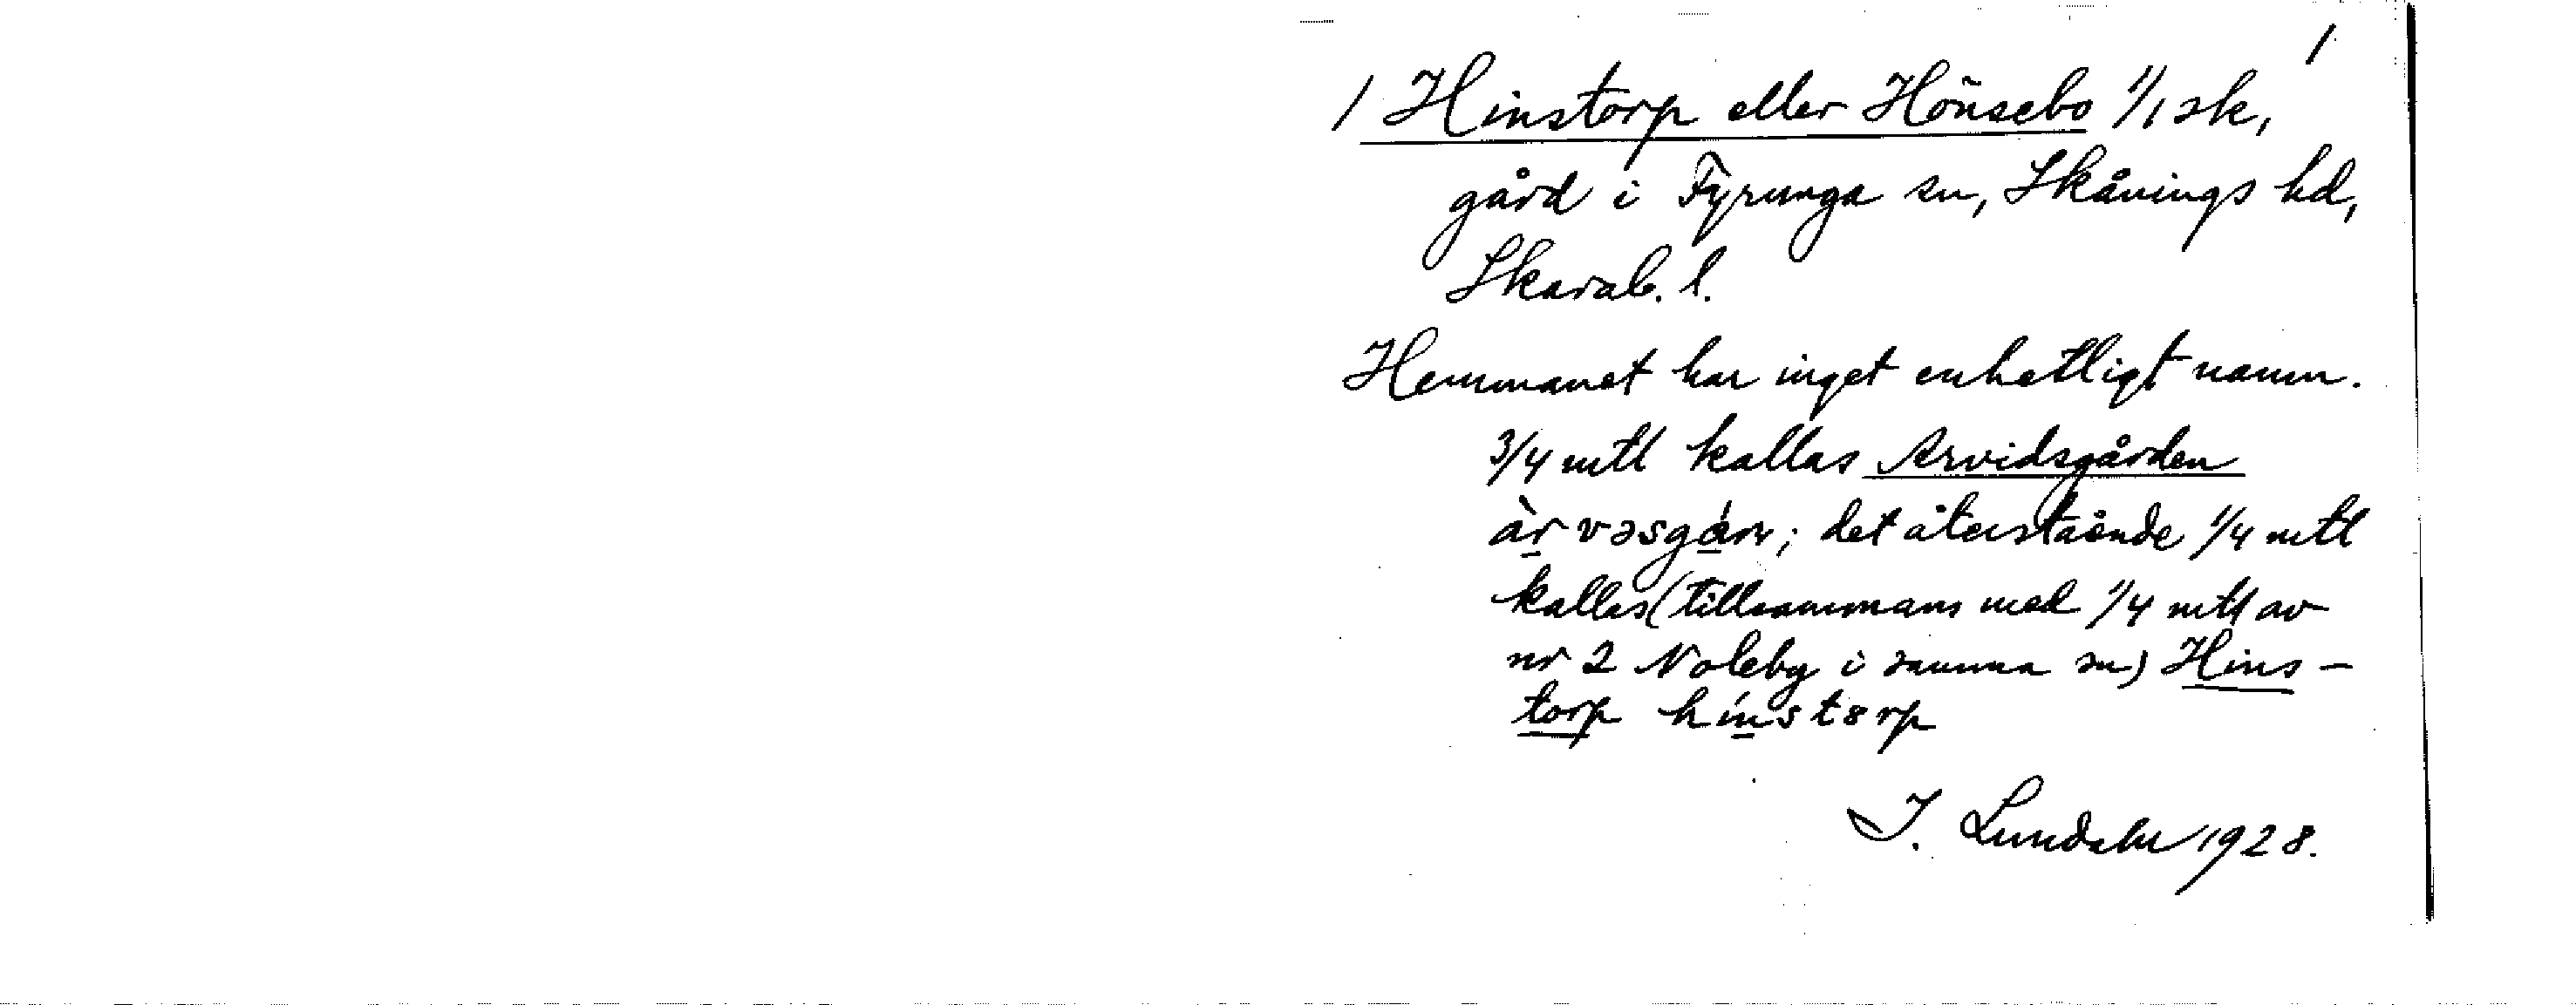 1
1 Hinstorp eller Hönsebo 1/1 sk,
gård i Fyrunga sn, Skånings hd,
Skarab. l.
Hemmanet har inget enhetligt namn.
3/4 mtl kallas Arvidsgården
det återstående 1/4 mtl
kallas (tillsammans med 1/4 mtl av
nr 2 Noleby i samma sn) Hins-
torp hinstɜrp
I. Lundahl 1928.